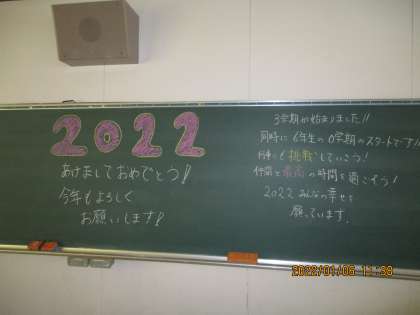 2022
あけましておめでとう!!
今年もよろしく
お願いします!!
3学期が始まりました!!
同時に6年生の0学期のスタートです!!
何事にも挑戦していこう!
仲間と最高の時間を過ごそう!
2022 みんなの幸せを
願っています。
2022/01/06 11:38